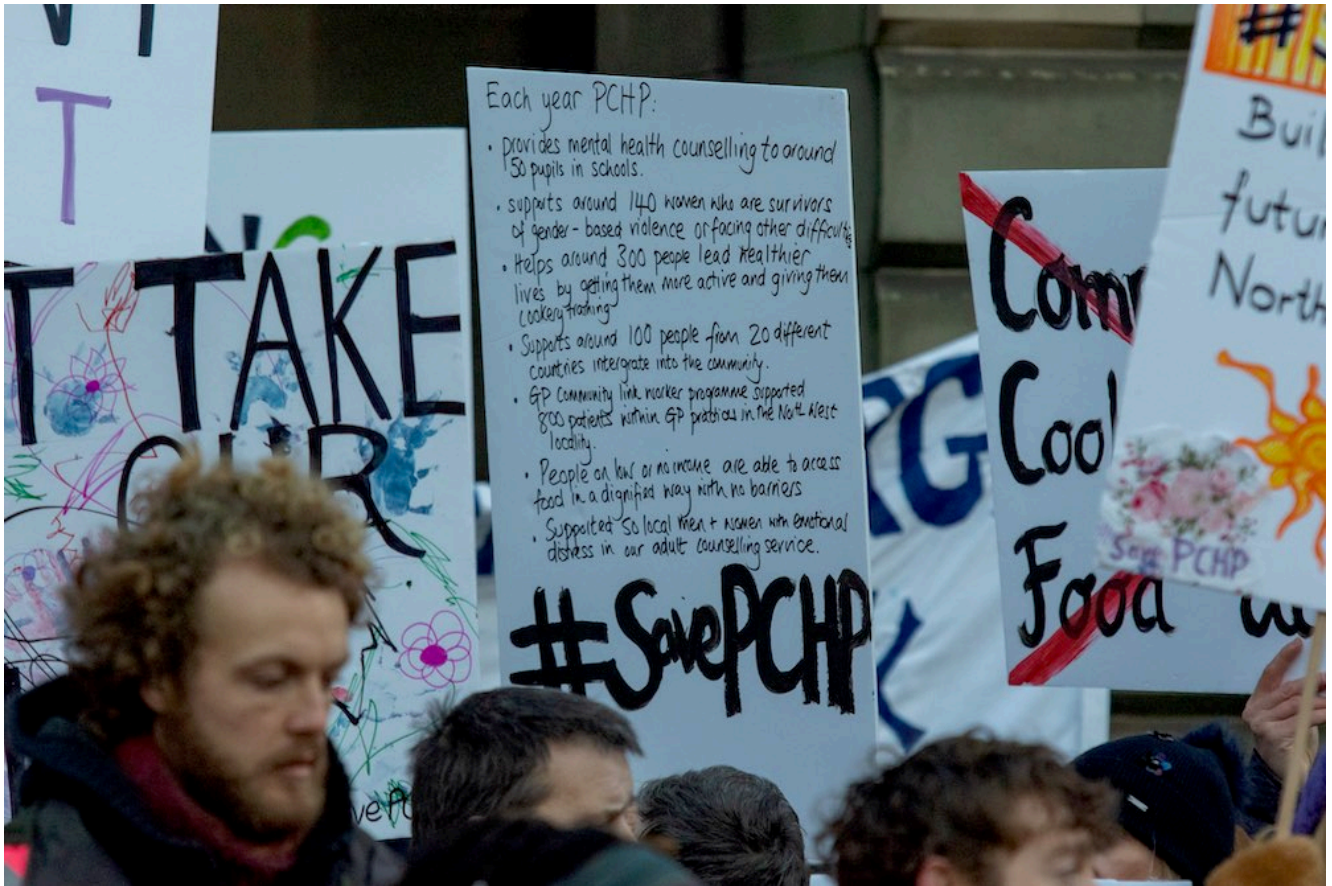 T
T TAKE
OUR
Each year PCHP:
• provides mental health counselling to around
50 pupils in schools.
• supports around 140 women who are survivors
of gender-based violence or facing other difficulty
• Helps around 300 people lead healthier
lives by getting them more active and giving them
cookery training
• Supports around 100 people from 20 different
countries intergrate into the community.
• GP Community link worker programme supported
800 patients within GP practices in the North West
locality.
• People on low or no income are able to access
food in a dignified way with no barriers
• Supported 50 local men + women with emotional
distress in our adult counselling service.
#SavePCHP
RG
K
Com
Coo
Food
#S
Buil
futur
North
Save PCHP